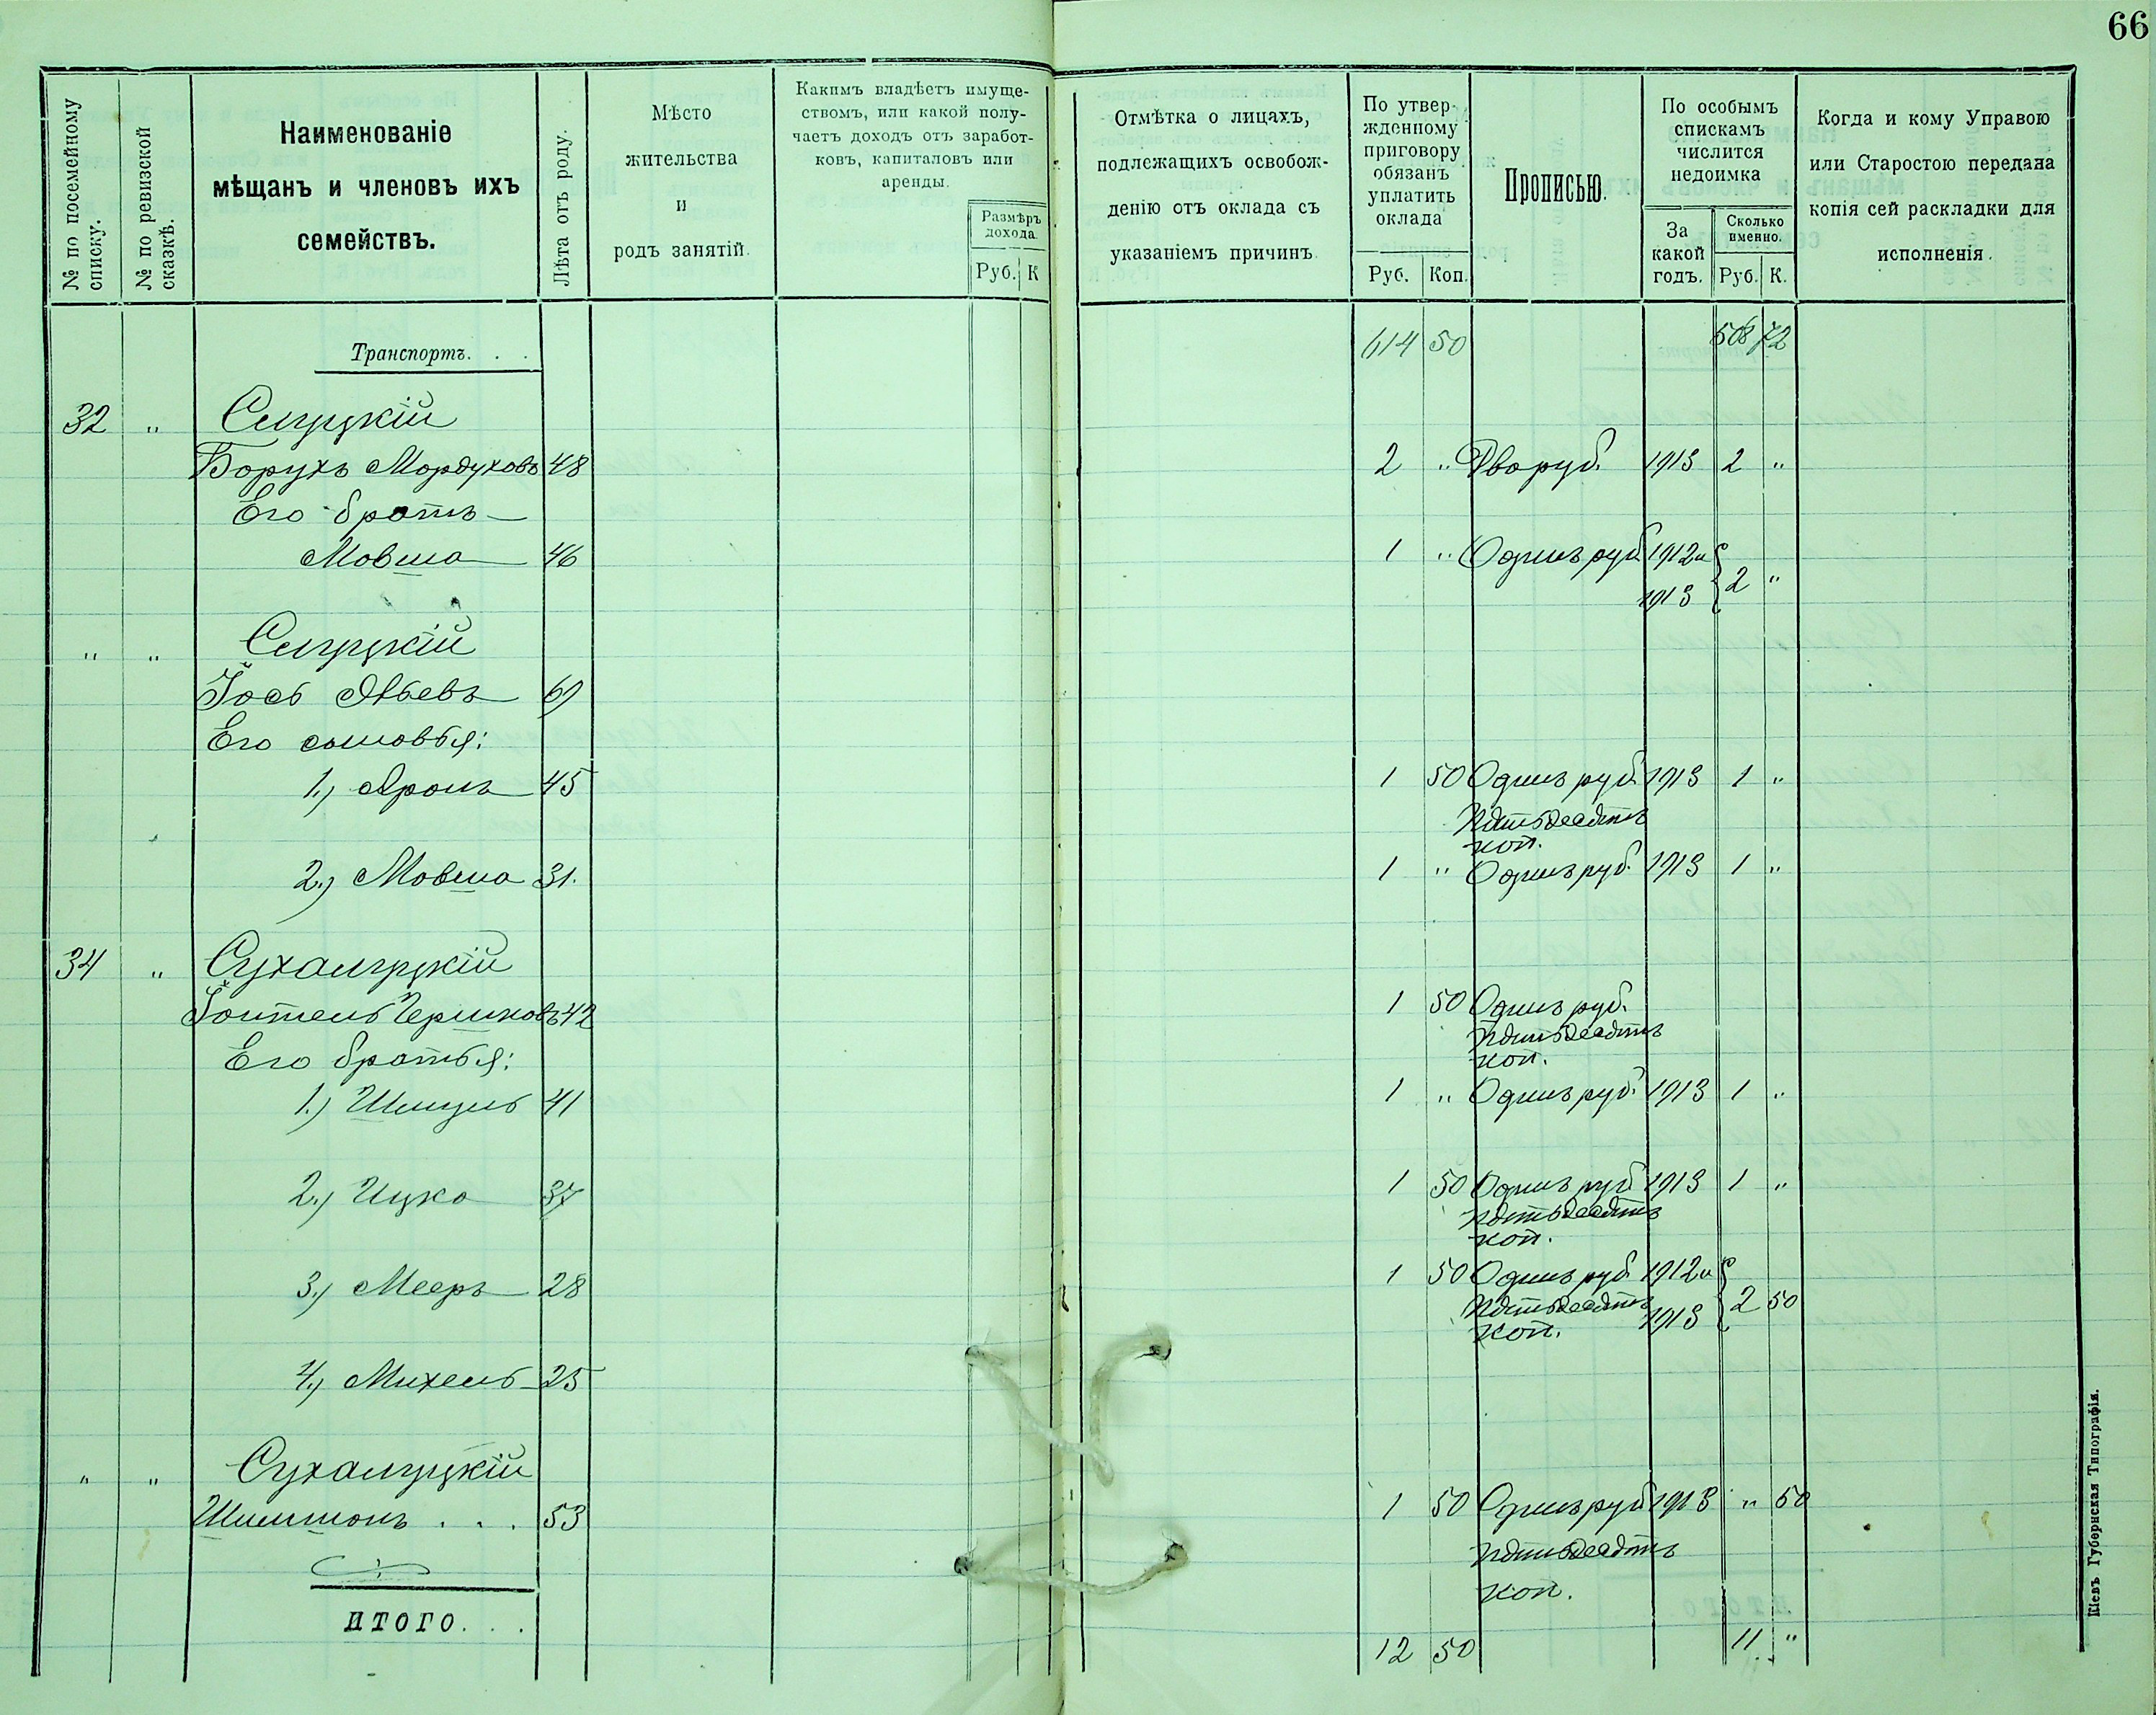 66
№ по посемейному списку.
№ по ревизской сказкѣ.
Наименованіе
мѣщанъ и членовъ ихъ
семействъ.
Лѣта отъ роду.
Мѣсто
жительства
и
родъ занятій.
Какимъ владѣетъ имуще-
ствомъ, или какой полу-
чаетъ доходъ отъ заработ-
ковъ, капиталовъ или
аренды.
Размѣръ
дохода.
Руб. К
Отмѣтка о лицахъ,
подлежащихъ освобож-
денію отъ оклада съ
указаніемъ причинъ.
По утвер-
жденному
приговору
обязанъ
уплатить
оклада
Руб. Коп.
Прописью.
По особымъ
спискамъ
числится
недоимка
За
какой
годъ.
Сколько
именно.
Руб. К.
Когда и кому Управою
или Старостою передана
копія сей раскладки для
исполненія.
Транспортъ. . . 614 50 508 72
32 " Слуцкій
Борухъ Мордуховъ 48 2 " Два руб. 1913 2 "
Его братъ
Мовша 46 1 " Одинъ руб. 1912 и 2 "
1913
" " Слуцкій
Іось Абевъ 69
Его сыновья:
1.) Аронъ 45 1 50 Одинъ руб. 1913 1 "
пятьдесятъ
коп.
2.) Мовша 31. 1 " Одинъ руб. 1913 1 "
34 " Сухалуцкій
Гершковъ 42 1 50 Одинъ руб.
пятьдесятъ
Его братья: коп.
1.) Шмуль 41 1 " Одинъ руб. 1913 1 "
2.) Ицко 37 1 50 Одинъ руб. 1913 1 "
пятьдесятъ
коп.
3.) Мееръ 28 1 50 Одинъ руб. 1912 и 2 50
пятьдесятъ 1913
коп.
4.) Михель 25
" " Сухалуцкій
Шимшонъ . . . 53 1 50 Одинъ руб. 1913 " 50
пятьдесятъ
коп.
ИТОГО. . . 12 50 11 "
Кіевъ Губернская Типографія.